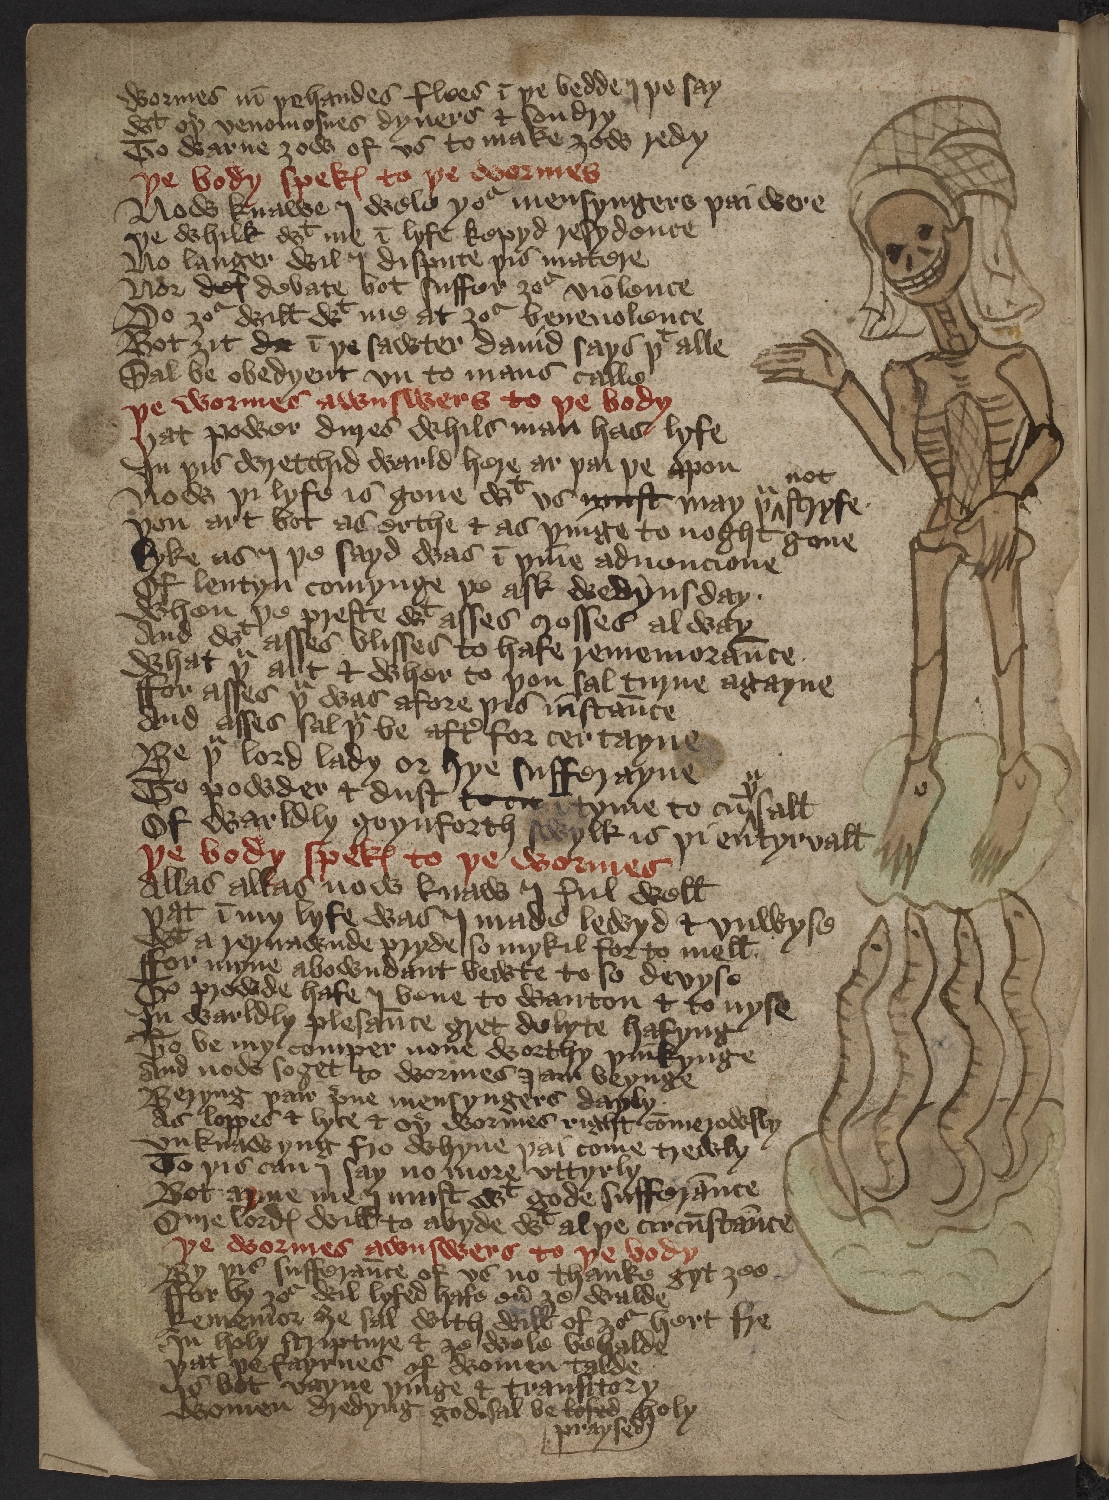 Wormes in þe handes flees ī þe bedde I þe say
Wt oþ venomosnes dyuers & sondry
To warne ȝow of vs to make ȝow redy
þe body spekƺ to þe wormes
Now knawe I wele ȝor mensyngers þai were
þe whilk wt me ī lyfe kepyd resydence
No langer wil I dispute þis matere
Nor def debate bot suffer ȝor violence
Do ȝor will wt me at ȝor beneuolence
Bot ȝit da ī þe sawter dauid says þt alle
Sal be obedyent vn to mans calle
þe wormes awnswers to þe body
þat power dures whils man has lyfe
In þis wretchid warld here ar þai þe vpon
Now þi lyfe is gone wt vs may þu not stryfe
þou art bot as erthe & as þinge to noght gone
lyke as I þe sayd was ī þine aduencione
Of lentyn comynge þe ask wedynsday
When þe preste wt asses crosses alway
And wt asses blisses to hafe rememorāce
What þu art & wher to þou sal turne agayne
ffor asses þu was afore þis īnstāce
And asses sal þu be aftr for certayne
Be þu lord lady or hye sufferayne
To powder & dust ī tyme to cū þu sall
Of warldly goynforth swylk is þi entyrvall
þe body spekƺ to þe wormes
Allas allas now knaw I ful well
þat ī my lyfe was I made lewyd & vnwyse
Wt a reynawnde pryde so mykil forto mell
ffor myne abowndant bewte to so devyse
To prowde hafe I bene to wanton & to nyse
In warldly plesāce gret delyte hafyng
To be my comper none worthy þinkynge
And now soget to wormes I am beynge
Beryng þair prue mensyngers dayly
As loppes & lyce & oþ wormes right cōmerowsly
vnknawyng fro whyne þai come trewly
To þis can I say no more vttyrly
Bot arme me I must wt gode sufferāce
Oure lordƺ will to abyde wt al þe circūstāce
þe wormes awnswers to þe body
By þis sufferāce of vs no thanke gyt ȝee
ffor by ȝor wil lyfed hafe euer ȝe walde
Rememor ȝe sal with will of ȝor hert fre
In holy scripture & ȝe wele behalde
þat þe fayrnes of women talde
Is bot vayne þinge & transitory
Women dredyng god sal be lofed holy
praysed